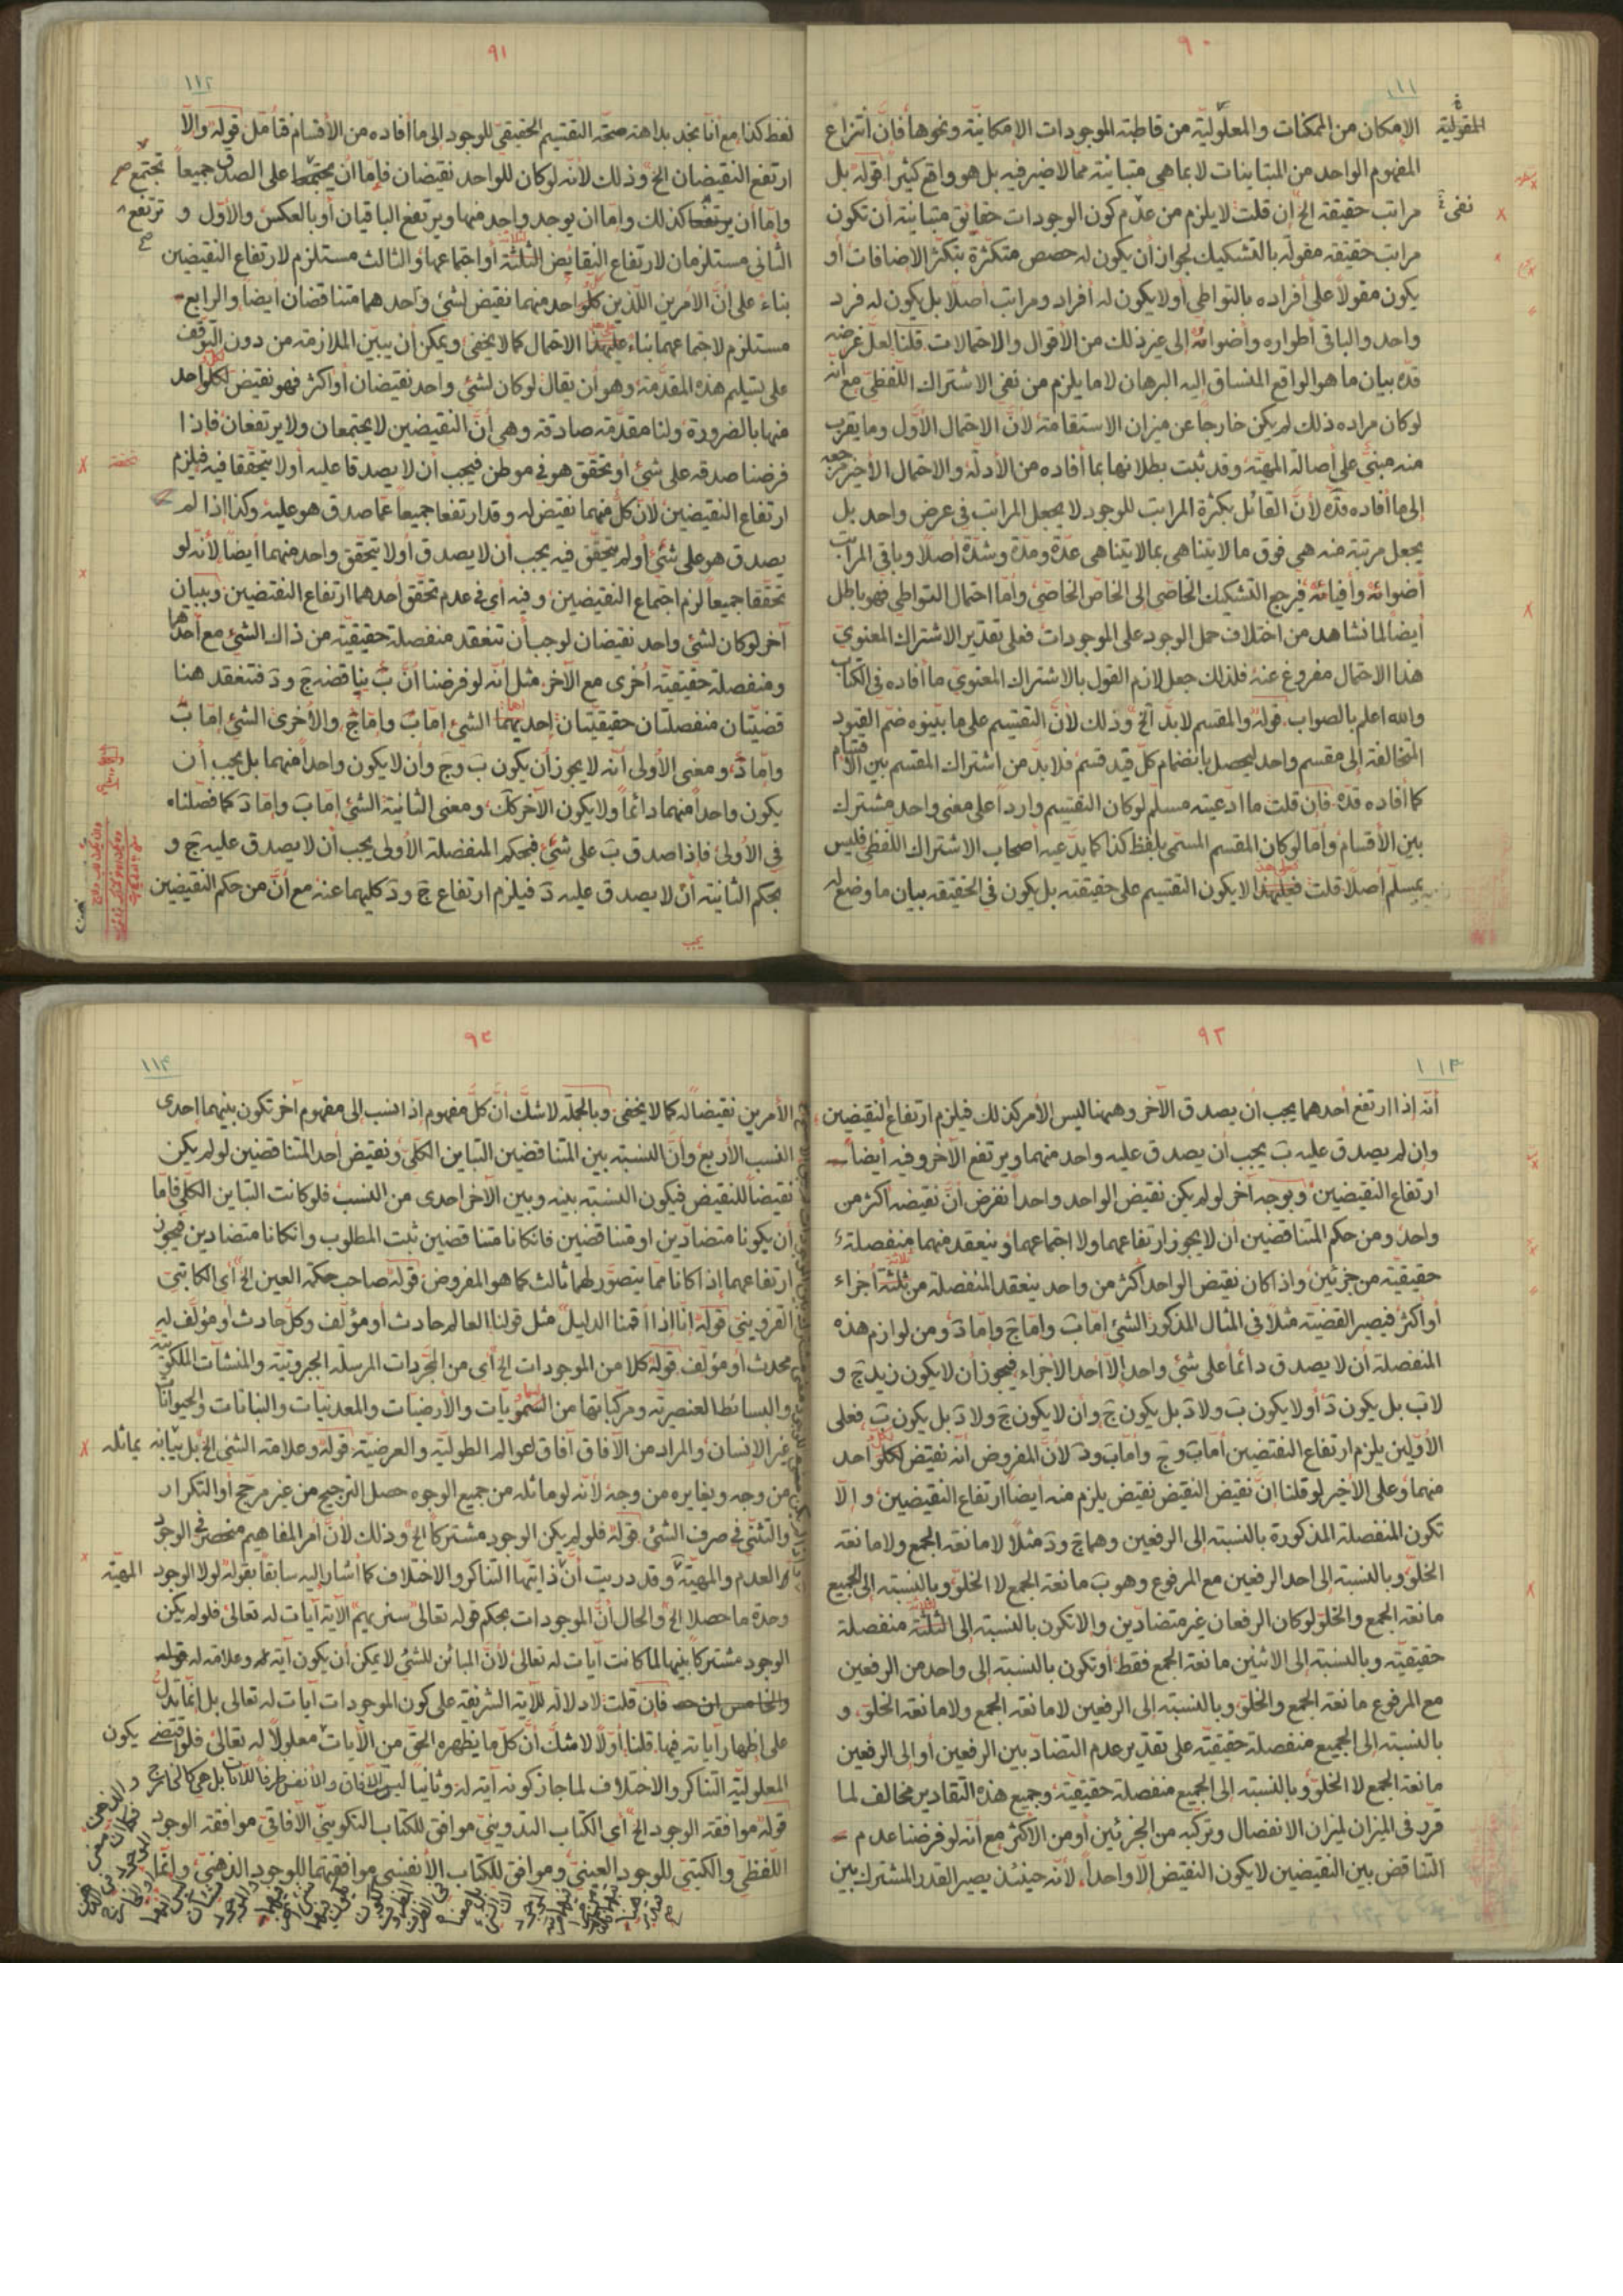 ٩٠
١١١
المقولية
الإمكان من الممكنات والمعلوليّة من قاطبة الموجودات الإمكانيّة ونحوها فإنّ انتزاع
المفهوم الواحد من المتباينات لا بما هي متباينة ممّا لا ضير فيه بل هو واقع كثيراً قوله بل
نفى
مراتب حقيقة الخ ان قلت لا يلزم من عدم كون الوجودات حقايق متباينة أن تكون
مراتب حقيقة مقولة بالتشكيك لجواز أن يكون له حصص متكثّرة بتكثّر الإضافات أو
يكون مقولاً على أفراده بالتواطي أو لا يكون له أفراد ومراتب أصلاً بل يكون له فرد
واحد والباقي أطواره وأضوائه إلى غير ذلك من الأقوال والاحتمالات قلنا لعلّ غرضه
قدّه بيان ما هو الواقع المنساق إليه البرهان لا ما يلزم من نفي الاشتراك اللّفظي مع أنّه
لو كان مراده ذلك لم يكن خارجاً عن ميزان الاستقامة لأنّ الاحتمال الأوّل وما يقرب
منه مبنيّ على أصالة المهيّة وقد ثبت بطلانها بما أفاده من الأدلّة والاحتمال الأخير مرجعه
إلى ما أفاده قدّه لأنّ القائل بكثرة المراتب للوجود لا يجعل المراتب في عرض واحد بل
يجعل مرتبة منه هي فوق ما لا يتناهى بما لا يتناهى عدّة ومدّة وشدّة أصلاً وباقي المراتب
أضوائه وأفيائه فيرجع التشكيك الخاصّي إلى الخاصّ الخاصّي وأمّا احتمال التواطي فهو باطل
أيضاً لما نشاهد من اختلاف حمل الوجود على الموجودات فعلى تقدير الاشتراك المعنوي
هذا الاحتمال مفروغ عنه فلذلك جعل لازم القول بالاشتراك المعنوي ما أفاده في الكتاب
والله اعلم بالصواب قوله والمقسم لا بدّ الخ وذلك لأنّ التقسيم على ما بيّنوه ضمّ القيود
المتخالفة إلى مقسم واحد ليحصل بانضمام كلّ قيد قسم فلا بدّ من اشتراك المقسم بين الأقسام
كما أفاده قدّه فان قلت ما ادّعيته مسلّم لو كان التقسيم وارداً على معنى واحد مشترك
بين الأقسام وأمّا لو كان المقسم المسمّى بلفظ كذا كما يدّعيه أصحاب الاشتراك اللّفظي فليس
بمسلّم أصلاً قلت فعلى هذا لا يكون التقسيم على حقيقته بل يكون في الحقيقة بيان ما وضع له
٩١
١١٢
لفظ كذا مع أنّا نجد بداهة صحّة التقسيم الحقيقي للوجود إلى ما أفاده من الأقسام فتأمّل قوله والّا
ارتفع النقيضان الخ وذلك لأنّه لو كان للواحد نقيضان فإمّا أن يجتمعا على الصدق جميعاً
تجتمع صح
وإمّا أن يرتفعا كذلك وإمّا ان يوجد واحد منهما ويرتفع الباقيان أو بالعكس والأوّل و
ترتفع صح
الثاني مستلزمان لارتفاع النقايض الثلثة أو اجتماعها والثالث مستلزم لارتفاع النقيضين
بناء على أنّ الأمرين اللّذين كلّ واحد منهما نقيض لشئ واحد هما متناقضان أيضاً والرابع
مستلزم لاجتماعهما بناء على هذا الاحتمال كما لا يخفى ويمكن أن يبيّن الملازمة من دون التوقّف
على تسليم هذه المقدّمة وهو أن يقال لو كان لشئ واحد نقيضان أو أكثر فهو نقيض لكلّ واحد
منها بالضرورة ولنا مقدّمة صادقة وهي أنّ النقيضين لا يجتمعان ولا يرتفعان فإذا
فرضنا صدقه على شئ أو تحقّق هو في موطن فيجب أن لا يصدقا عليه أو لا يتحقّقا فيه فيلزم
ارتفاع النقيضين لأنّ كلّ منهما نقيض له وقد ارتفعا جميعاً عمّا صدق هو عليه وكذا إذا لم
يصدق هو على شئ أو لم يتحقّق فيه يجب أن لا يصدق أو لا يتحقّق واحد منهما أيضاً لأنّه لو
تحقّقا جميعاً لزم اجتماع النقيضين وفيه أي في عدم تحقّق أحدهما ارتفاع النقيضين وببيان
آخر لو كان لشئ واحد نقيضان لوجب أن تنعقد منفصلة حقيقيّة من ذاك الشئ مع أحدهما
ومنفصلة حقيقيّة أخرى مع الآخر مثل أنّه لو فرضنا أنّ بَ يناقضه جَ ودَ فتنعقد هنا
قضيّتان منفصلتان حقيقيّتان إحديهما الشئ إمّا بَ وإمّا جَ والأخرى الشئ إمّا بَ
وإمّا دَ ومعنى الأولى أنّه لا يجوز أن يكون بَ وجَ وأن لا يكون واحداً منهما بل يجب أن
يكون واحداً منهما دائماً ولا يكون الآخر كذلك ومعنى الثانية الشئ إمّا بَ وإمّا دَ كما فصّلناه
في الأولى فإذا صدق بَ على شئ فبحكم المنفصلة الأولى يجب أن لا يصدق عليه جَ و
بحكم الثانية أن لا يصدق عليه دَ فيلزم ارتفاع جَ ودَ كليهما عنه مع أنّ من حكم النقيضين
يجب
٩٢
١١٣
أنّه إذا ارتفع أحدهما يجب أن يصدق الآخر وههنا ليس الأمر كذلك فيلزم ارتفاع النقيضين
وإن لم يصدق عليه بَ يجب أن يصدق عليه واحد منهما ويرتفع الآخر وفيه أيضاً
ارتفاع النقيضين وبوجه آخر لو لم يكن نقيض الواحد واحداً نفرض أنّ نقيضه أكثر من
واحد ومن حكم المتناقضين أن لا يجوز ارتفاعهما ولا اجتماعهما وينعقد منهما منفصلة
حقيقيّة من جزئين وإذا كان نقيض الواحد أكثر من واحد ينعقد المنفصلة من ثلثة أجزاء
أو أكثر فيصير القضيّة مثلاً في المثال المذكور الشئ إمّا بَ وإمّا جَ وإمّا دَ ومن لوازم هذه
المنفصلة أن لا يصدق دائماً على شئ واحد إلّا أحد الأجزاء فيجوز أن لا يكون زيد جَ و
لا بَ بل يكون دَ أو لا يكون بَ ولا دَ بل يكون جَ وأن لا يكون جَ ولا دَ بل يكون بَ فعلى
الأوّلين يلزم ارتفاع النقيضين أمّا بَ وجَ وأمّا بَ ودَ لأنّ المفروض أنّه نقيض لكلّ واحد
منهما وعلى الأخير لو قلنا انّ نقيض النقيض نقيض يلزم منه أيضاً ارتفاع النقيضين والّا
تكون المنفصلة المذكورة بالنسبة إلى الرفعين وهما جَ ودَ مثلاً لا مانعة الجمع ولا مانعة
الخلوّ وبالنسبة إلى احد الرفعين مع المرفوع وهو بَ مانعة الجمع لا الخلوّ وبالنسبة إلى الجميع
مانعة الجمع والخلوّ لو كان الرفعان غير متضادّين والا تكون بالنسبة إلى الثلثة منفصلة
حقيقيّة وبالنسبة إلى الاثنين مانعة الجمع فقط أو تكون بالنسبة إلى واحد من الرفعين
مع المرفوع مانعة الجمع والخلوّ وبالنسبة إلى الرفعين لا مانعة الجمع ولا مانعة الخلوّ و
بالنسبة إلى الجميع منفصلة حقيقيّة على تقدير عدم التضادّ بين الرفعين أو إلى الرفعين
مانعة الجمع لا الخلوّ وبالنسبة إلى الجميع منفصلة حقيقيّة وجميع هذه التقادير مخالف لما
قرّر في الميزان لميزان الانفصال وتركّبه من الجزئين أو من الأكثر مع أنّه لو فرضنا عدم
التناقض بين النقيضين لا يكون النقيض إلّا واحداً لأنّه حينئذ يصير القدر المشترك بين
٩٣
١١٤
الأمرين نقيضاً له كما لا يخفى وبالجملة لا شكّ أنّ كلّ مفهوم إذا نسب إلى مفهوم آخر تكون بينهما إحدى
النسب الأربع وأنّ النسبة بين المتناقضين التباين الكلّي ونقيض أحد المتناقضين لو لم يكن
نقيضاً للنقيض فيكون النسبة بينه وبين الآخر احدى من النسب فلو كانت التباين الكلّي فإمّا
أن يكونا متضادّين او متناقضين فان كانا متناقضين ثبت المطلوب وان كانا متضادين فيجوز
ارتفاعهما إذا كانا ممّا يتصوّر لهما ثالث كما هو المفروض قوله صاحب حكمة العين الخ أي الكاتبي
القزويني قوله إنّا إذا أقمنا الدليل مثل قولنا العالم حادث أو مؤلف وكلّ حادث أو مؤلّف له
محدث أو مؤلف قوله كلا من الموجودات الخ أي من المجرّدات المرسلة الجبروتيّة والمنشآت الملكوتيّة
والبسائط العنصريّة ومركّباتها من السّمويّات والأرضيّات والمعدنيّات والنباتات والحيوانات
غير الإنسان والمراد من الآفاق آفاق لعوالم الطوليّة والعرضيّة قوله وعلامة الشئ الخ بل بيانه
يماثله
من وجه ويغايره من وجه لأنّه لو ماثله من جميع الوجوه حصل الترجيح من غير مرجّح أو التكرار
والتثنّي في صرف الشئ قوله فلو لم يكن الوجود مشتركاً الخ وذلك لأنّ أمر المفاهيم منحصر في الوجود
والعدم والمهيّة وقد دريت أنّ ذاتيّها التناكر والاختلاف كما أشار إليه سابقاً بقوله لولا الوجود
المهيّة
وحدة ما حصلا الخ والحال أنّ الموجودات بحكم قوله تعالى سنريهم الآية آيات له تعالى فلو لم يكن
الوجود مشتركاً بينها لما كانت آيات له تعالى لأنّ المباين للشئ لا يمكن أن يكون آية له وعلامة له قوله
والخامس ان فان قلت لا دلالة للآية الشريفة على كون الموجودات آيات له تعالى بل إنّما تدلّ
على إظهار آياته فيها قلنا أوّلاً لا شكّ أنّ كلّ ما يظهره الحقّ من الآيات معلولاً له تعالى فلو اقتضى
يكون
المعلوليّة التناكر والاختلاف لما جاز كونه آية له وثانيا ليس الآفاق والأنفس ظرفاً للآيات بل هي كالخارج
قوله موافقة الوجود الخ أي الكتاب التدويني موافق للكتاب التكويني الآفاقيّ موافقة الوجود
اللّفظي والكتبيّ للوجود العينيّ وموافق للكتاب الأنفسي موافقتهما للوجود الذهنيّ وإنّما